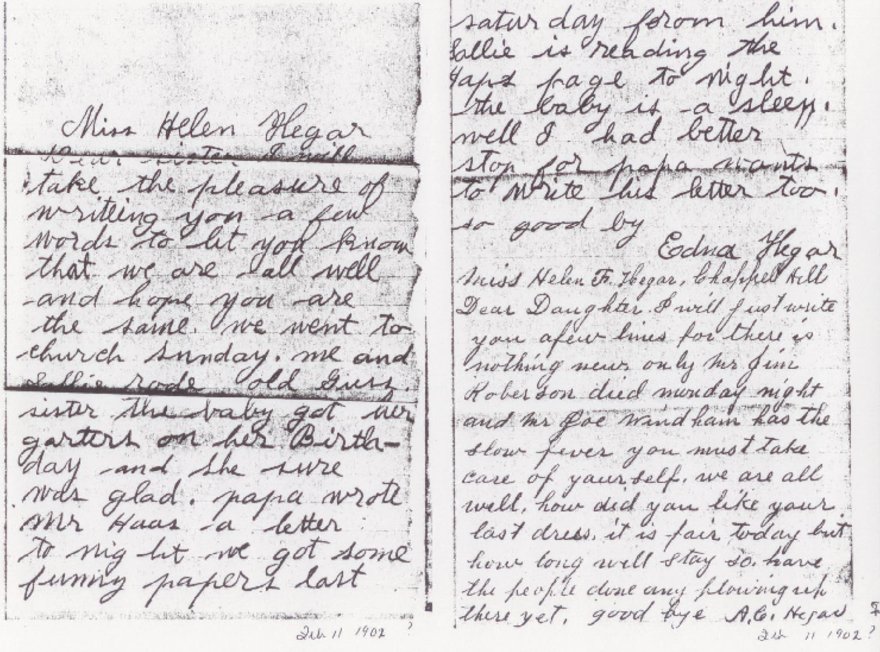 Miss Helen Hegar
Dear sister I will
take the pleasure of
writeing you a few
words to let you know
that we are all well
and hope you are
the same. we went to
church sunday. me and
Sallie rode old Guss
sister the baby got her
garters on her Birth-
day and she sure
was glad. papa wrote
Mr Haas a letter
to nig ht we got some
funny papers last
Feb 11 1902 ?
saturday from him.
Sallie is reading the
page to night.
the baby is a sleep.
well I had better
stop for papa wants
to write his letter too.
so good by
Edna Hegar
Miss Helen F. Hegar, Chappell Hill
Dear Daughter. I will just write
you afew lines for there is
nothing news only Mr Jim
Roberson died munday night
and Mr Joe Windham has the
slow fever you must take
care of yourself. we are all
well. how did you like your
last dress. it is fair today but
how long will stay so. have
the people done any plowing up
there yet. good bye A.C. Hegar
Feb 11 1902 ?